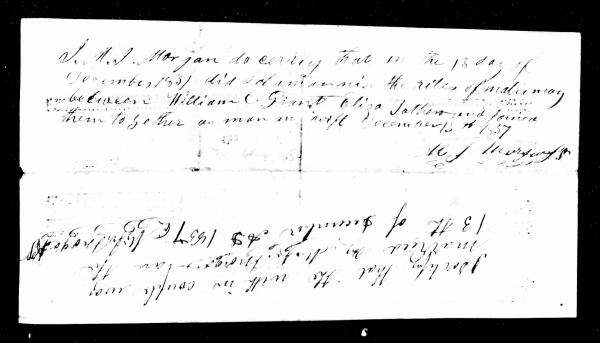 I. M. J. Morgan do cerciy that on the 13 day of
December 1857 did solominise the rites of matrimony
between William C. Grant Eliza and joined
them together as man and wife December 13 th 1857
M J Morgan
I certify that the with in couple was
married by on the
13 th of December AD 1857